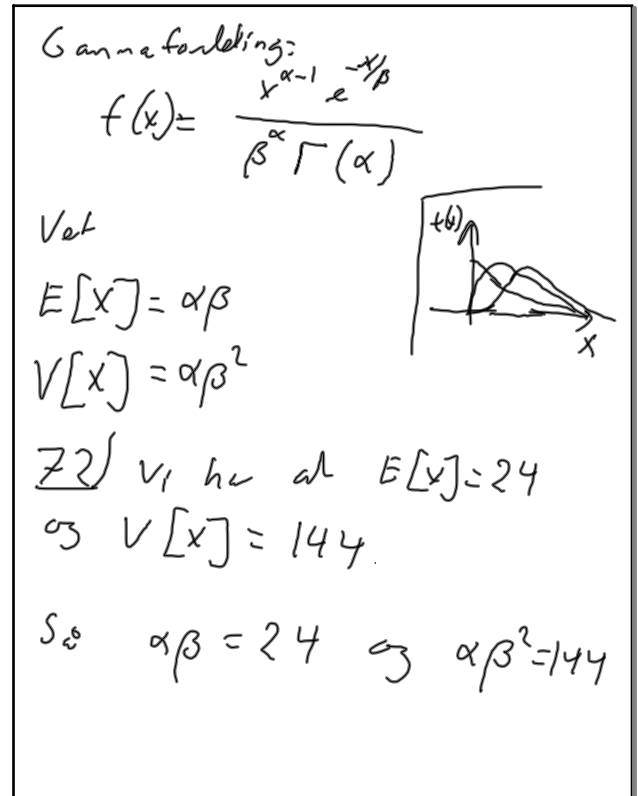 Gammafordeling:
f(x)= x^(α-1) e^(-x/β) / β^α Γ(α)
f(x)
x
Vet
E[X]=αβ
V[X]=αβ²
72) Vi har at E[X]=24
og V[X]=144.
Så αβ=24 og αβ²=144